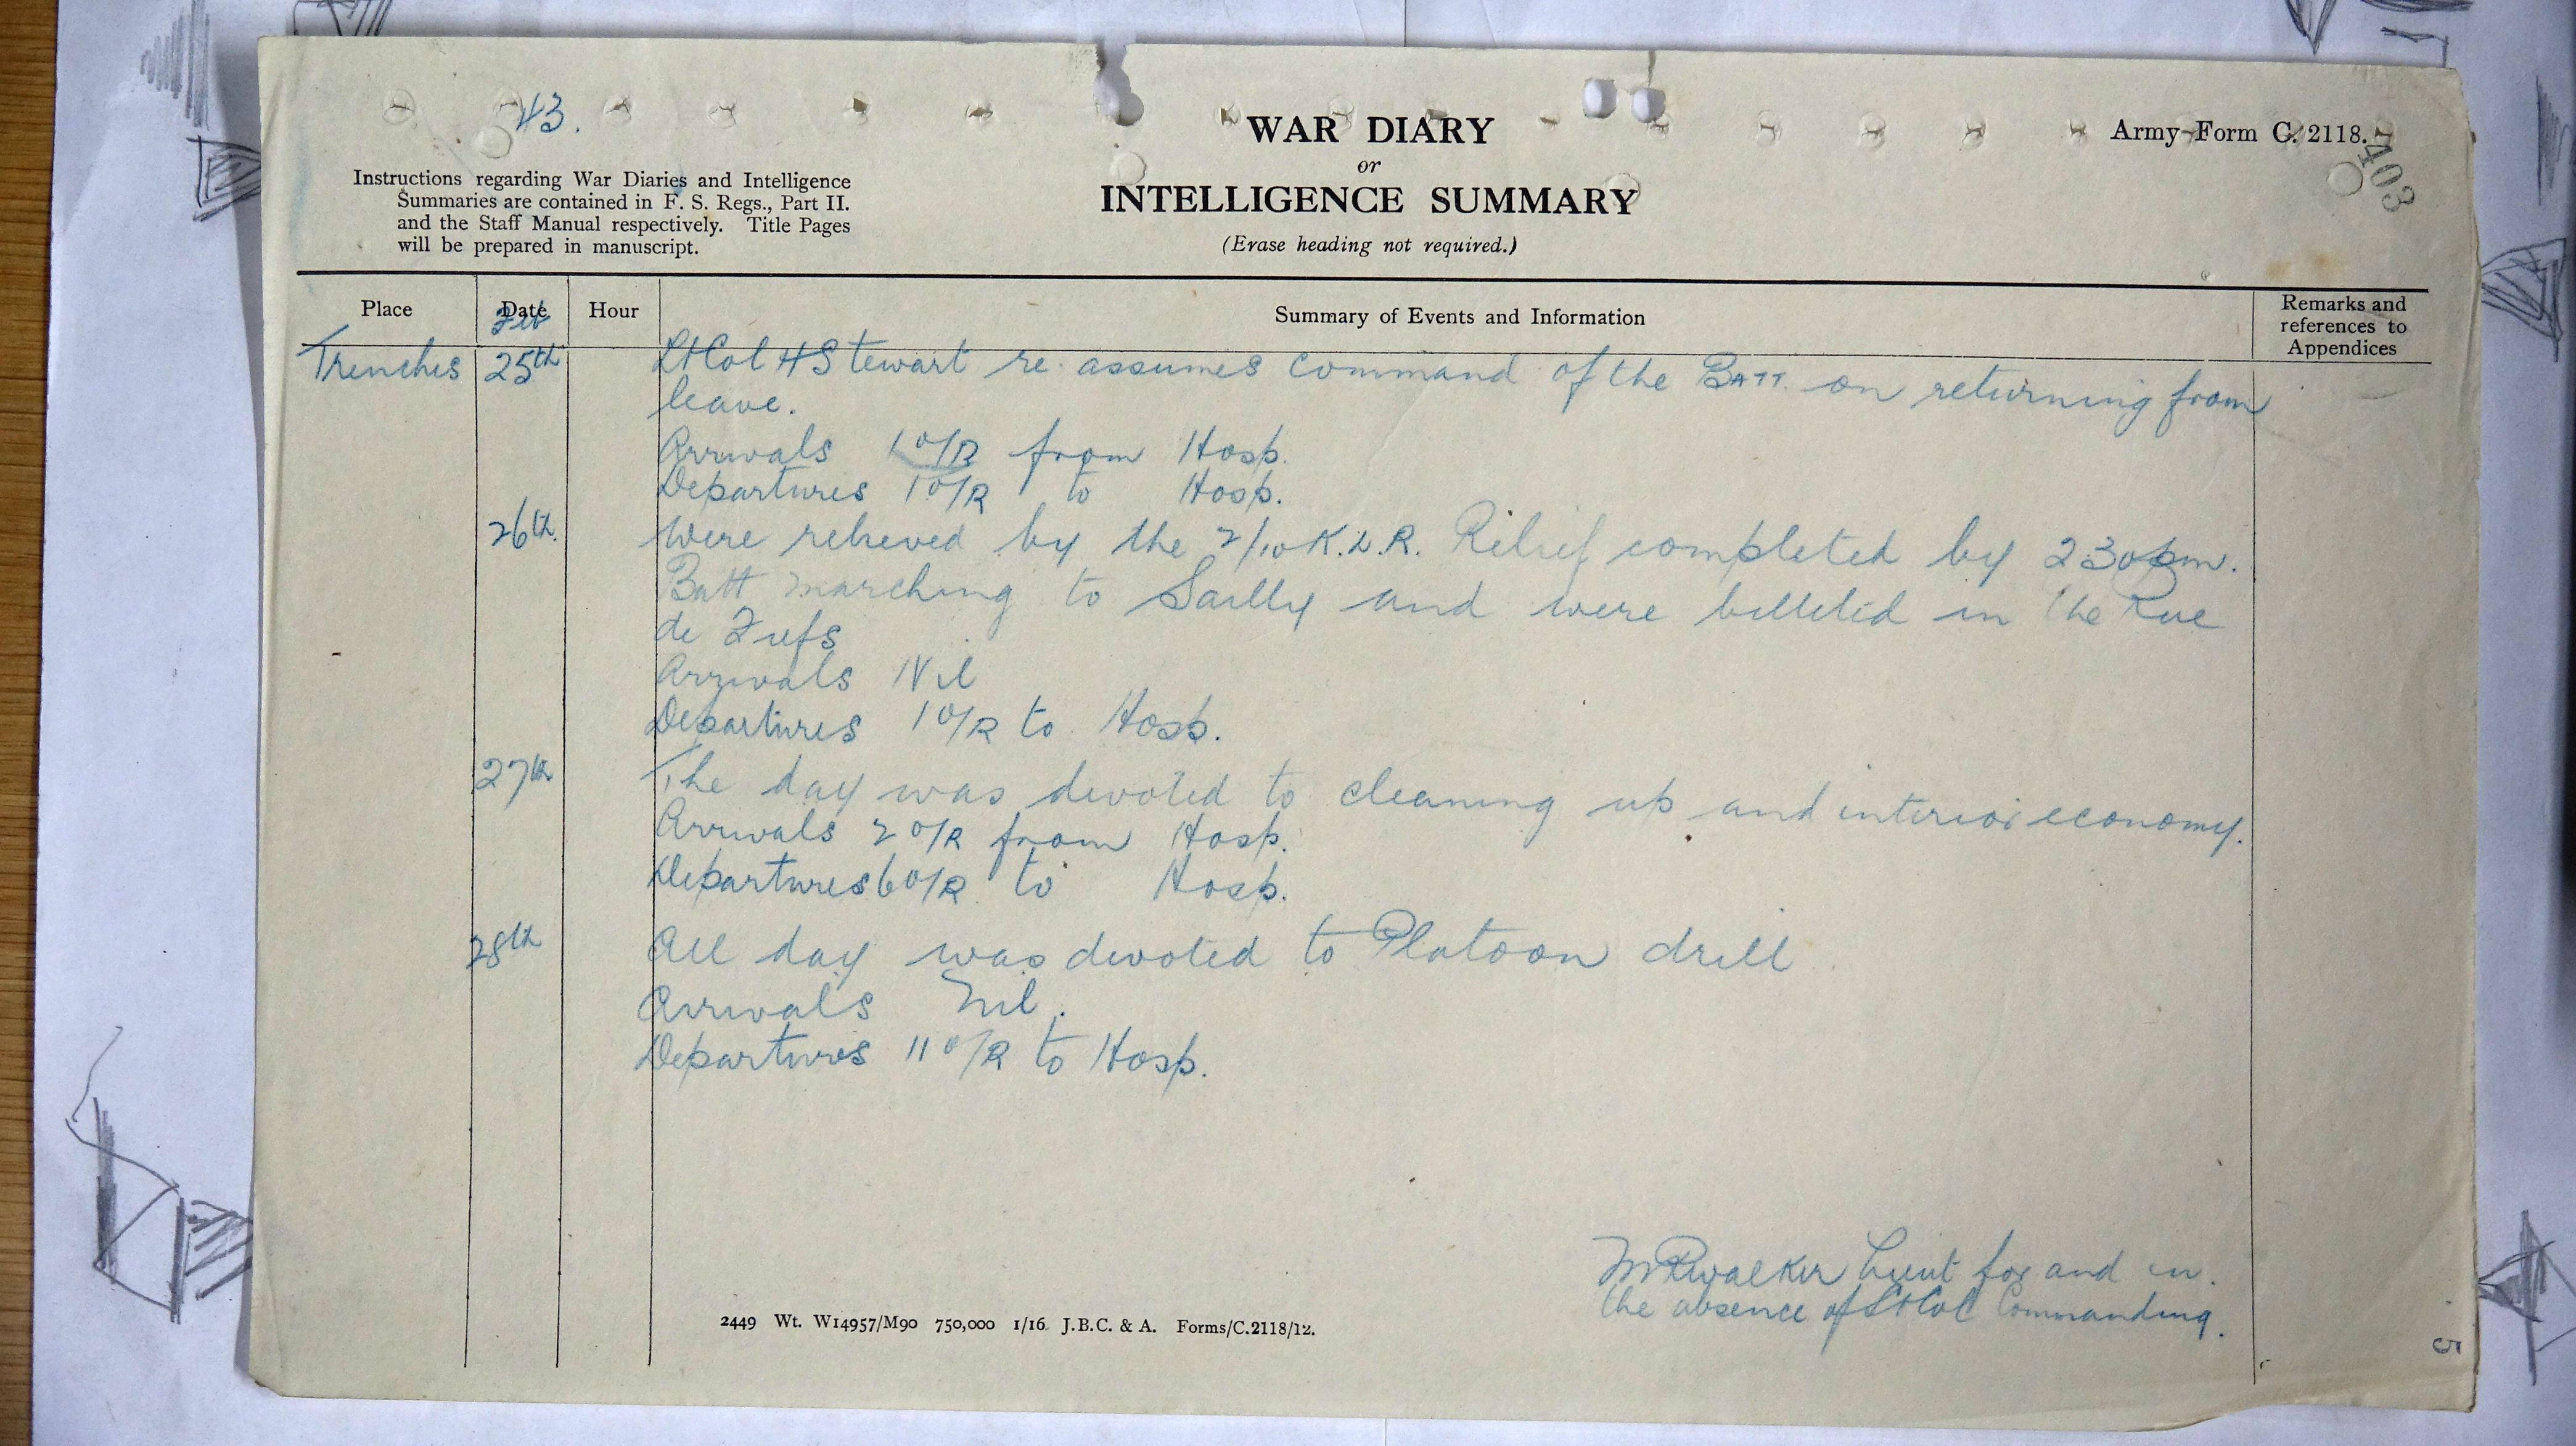 43.
WAR DIARY
or
INTELLIGENCE SUMMARY
(Erase heading not required.)
Army Form C. 2118.
403
Instructions regarding War Diaries and Intelligence
Summaries are contained in F. S. Regs., Part II.
and the Staff Manual respectively. Title Pages
will be prepared in manuscript.
Place Date Hour Summary of Events and Information Remarks and
references to
Appendices
Feb
Trenches 25th Lt Col H Stewart re assumes command of the BATT. on returning from
leave.
Arrivals 1 O/R from Hosp.
Departures 1 O/R to Hosp.
26th. Were relieved by the 2/10 K.L.R. Relief completed by 2 30 pm.
Batt marching to Sailly and were billeted in the Rue
de
Arrivals Nil
Departures 1 O/R to Hosp.
27th The day was devoted to cleaning up and interior economy.
Arrivals 2 O/R from Hosp.
Departures 6 O/R to Hosp.
28th All day was devoted to Platoon drill
Arrivals Nil.
Departures 11 O/R to Hosp.
Walker Lieut for and in
the absence of Lt Col Commanding.
2449 Wt. W14957/M90 750,000 1/16 J.B.C. & A. Forms/C.2118/12.
5